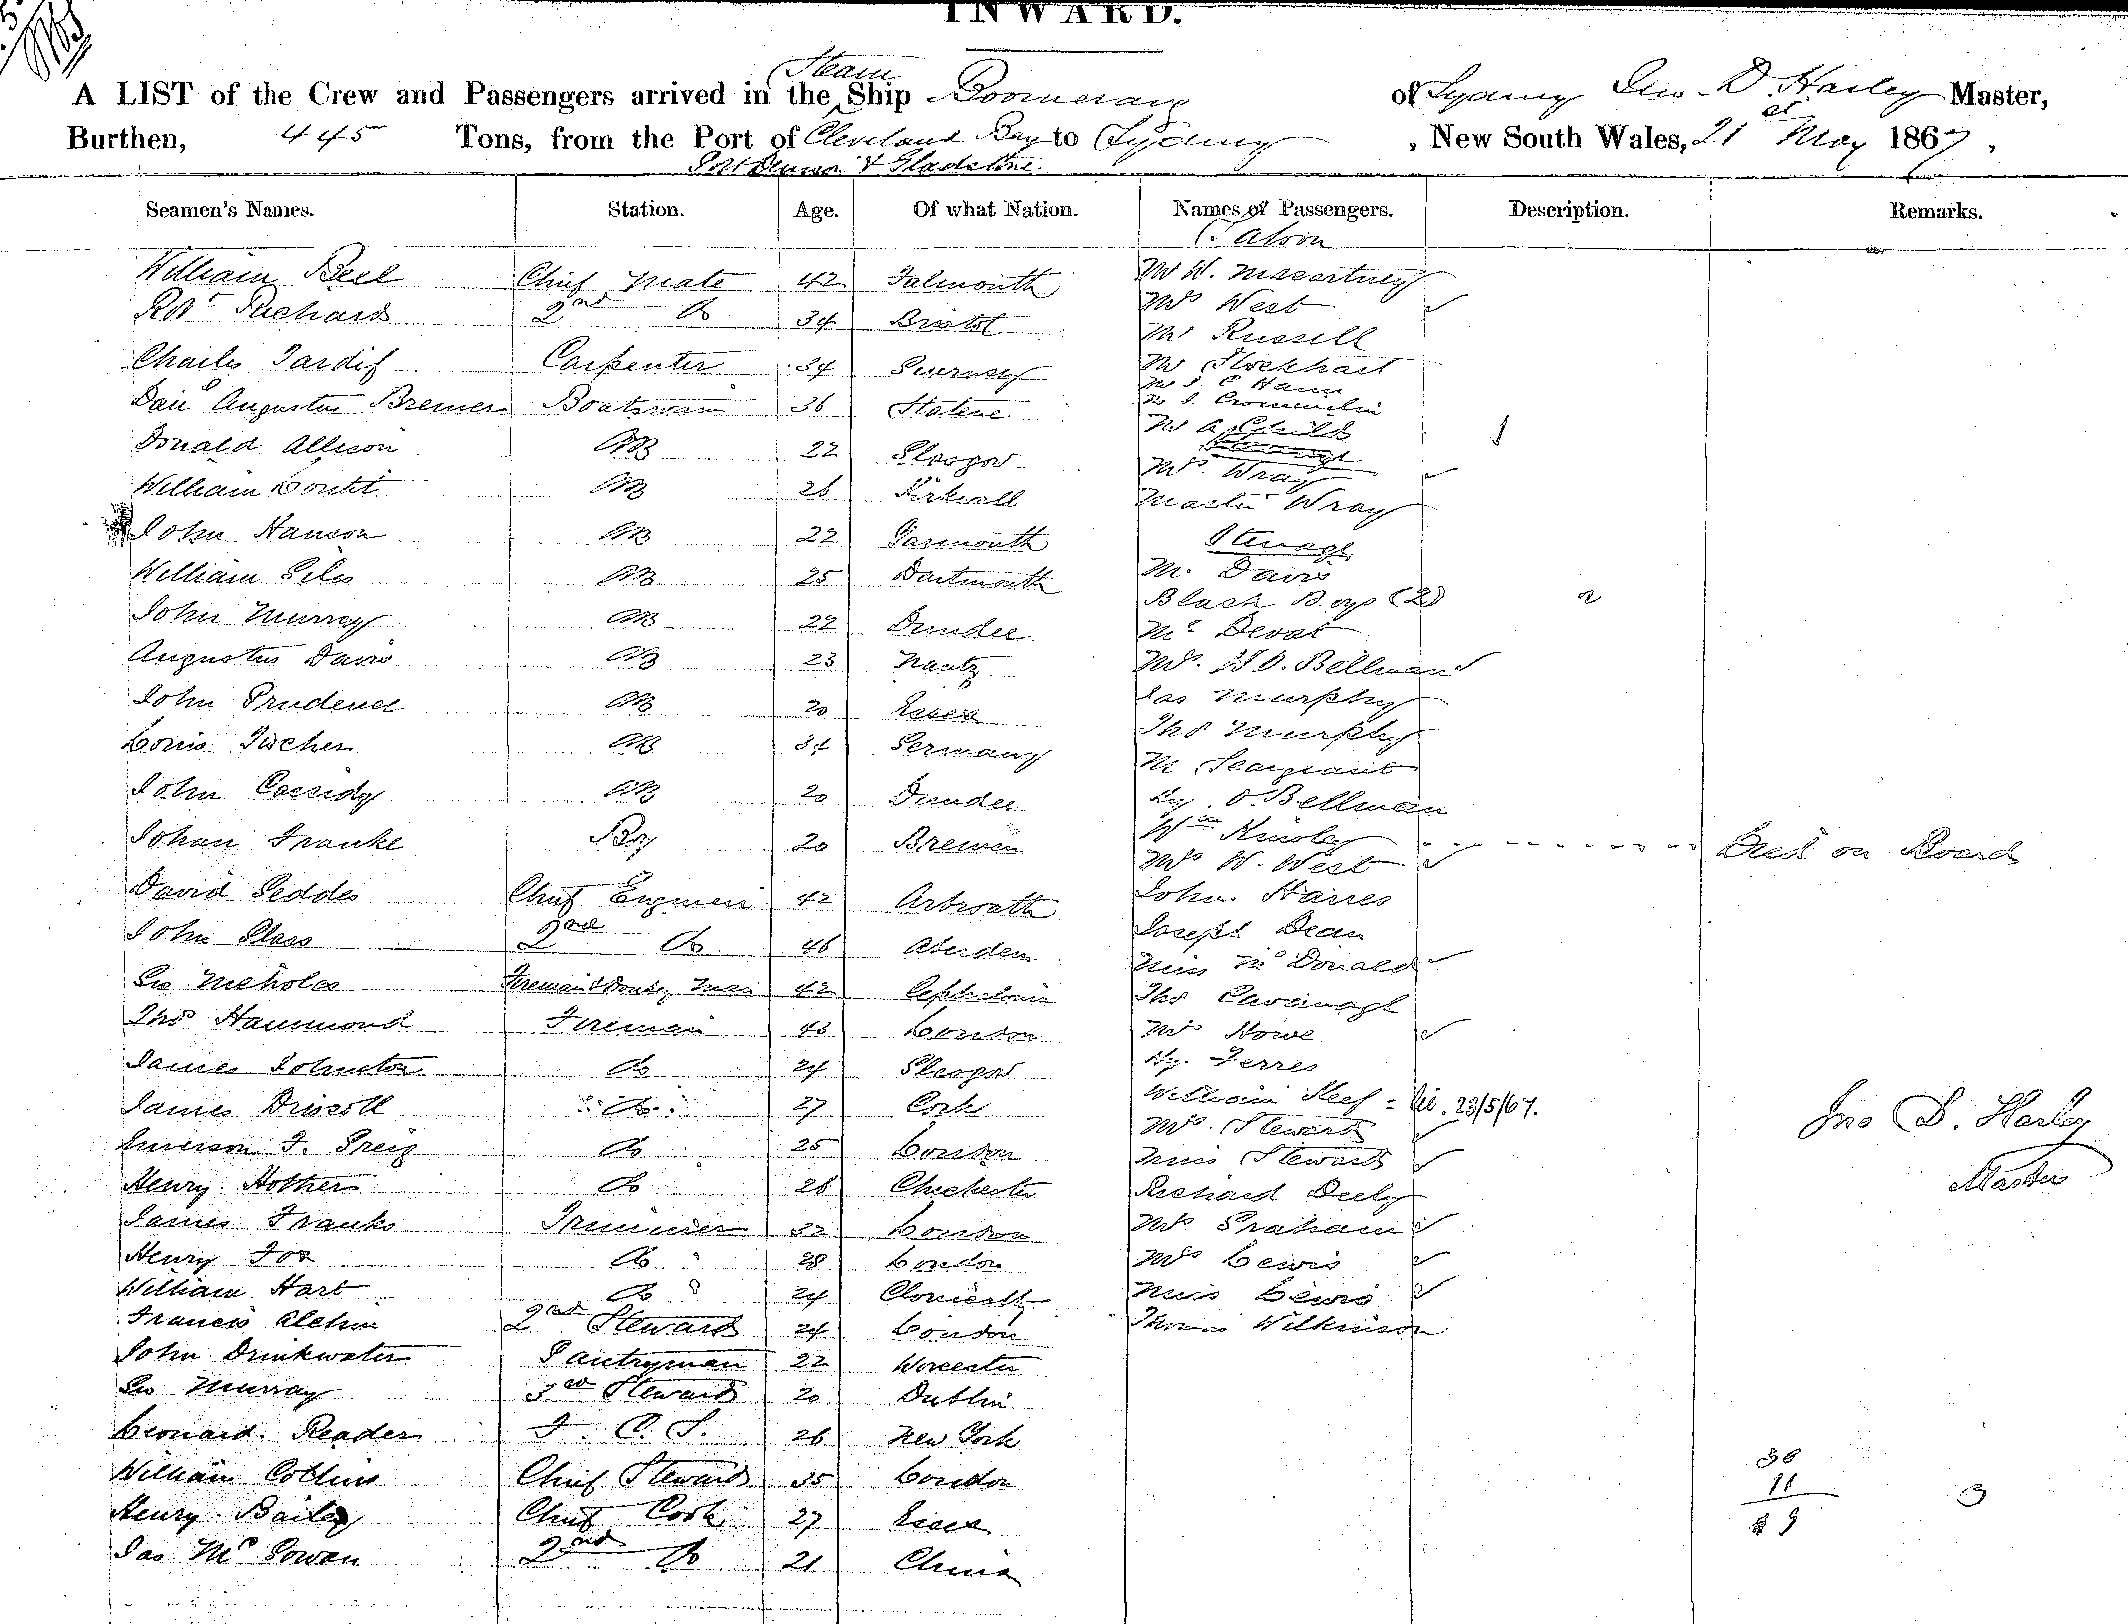 INWARD.
A LIST of the Crew and Passengers arrived in the Steam Ship Boomerang of Sydney Geo. D. Harley Master,
Burthen, 445 Tons, from the Port of Cleveland Bay to Sydney, New South Wales, 21st May 1867,
Port Denison & Gladstone
Seamen's Names. Station. Age. Of what Nation. Names of Passengers. Description. Remarks.
Saloon
William Bell Chief Mate 42 Falmouth
Robt Richards 2nd Do 34 Bristol
Charles Tardif Carpenter 34 Guernsey
Augustus Bremer Boatswain 36
Donald Allison AB 22 Glasgow
William AB 26 Kirkwall
John Hanson AB 22 Yarmouth
William Giles AB 25 Dartmouth
John Murray AB 22 Dundee
Augustus Davis AB 23 Nantz
John Prudence AB 20 Essex
Louis Fischer AB 34 Germany
John Cassidy AB 20 Dundee
Johan Franke Boy 20 Bremen
David Geddes Chief Engineer 42 Arbroath
John Glass 2nd Do 46 Aberdeen
Geo Nicholas Fireman & Donkey Man 42 Cephalonia
Thos Hammond Fireman 43 London
James Johnston Do 24 Glasgow
James Driscoll Do 27 Cork
Emerson F. Greig Do 25 London
Henry Hother Do 26 Chichester
James Franks Trimmer 32 London
Henry Fox Do 28 London
William Hart Do 24
Francis 2nd Steward 24 London
John Drinkwater Pantryman 22 Worcester
Geo Murray 3rd Steward 20 Dublin
Leonard Reader F. C. S. 26 New York
William Collins Chief Steward 35 London
Henry Bailey Chief Cook 27 Essex
Jas McGowan 2nd Do 21 China
Mr W. Macartney
Mrs West
Mr Russell
Mr Stockhart
Mr J. C. Hann
Mr A. Childs
Mrs Wray
Master Wray
Steerage
Mr Davis
Black Boys (2) 2
Mr Devat
Mrs. H O. Bellman
Jas Murphy
Thos Murphy
Mr Seargeant
Hy. O. Bellman
Wm Kinsley Died on Board
Mrs W. West
John Harris
Joseph Dean
Miss McDonald
Thos Cavanagh
Mrs Howe
Hy. Ferres
William Steel = 23/5/67.
Mrs. Steward
Miss Steward
Richard Deely
Mrs Graham
Mrs Lewis
Miss Lewis
Thomas Wilkinson
Geo D. Harley
Master
38
11